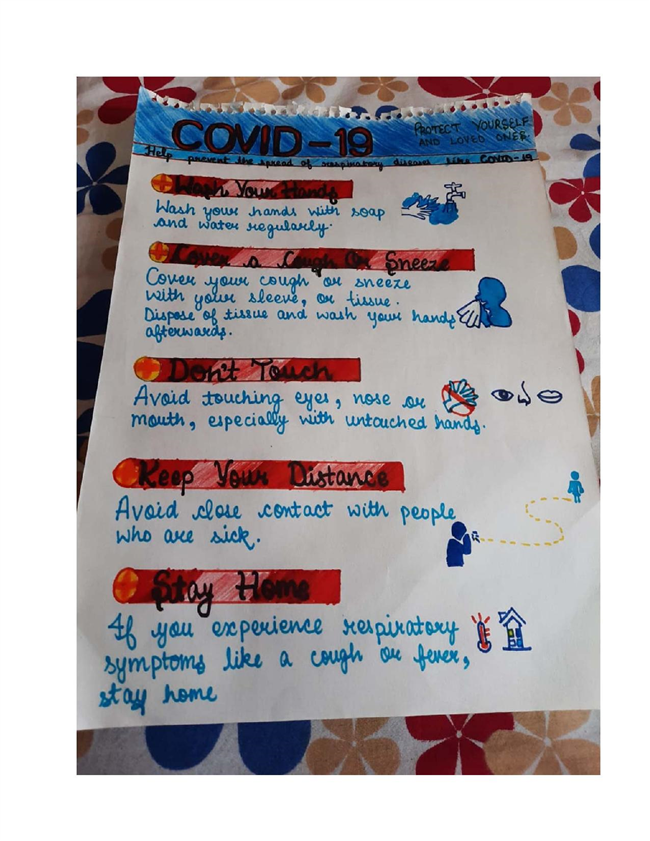 COVID-19
PROTECT YOURSELF
AND LOVED ONES
Help prevent the spread of respiratory diseases like COVID-19
Wash Your Hands
Wash your hands with soap
and water regularly.
Cover a Cough Or Sneeze
Cover your cough or sneeze
with your sleeve, or tissue.
Dispose of tissue and wash your hands
afterwards.
Don't Touch
Avoid touching eyes, nose or
mouth, especially with untouched hands.
Keep Your Distance
Avoid close contact with people
who are sick.
Stay Home
If you experience respiratory
symptoms like a cough or fever,
stay home